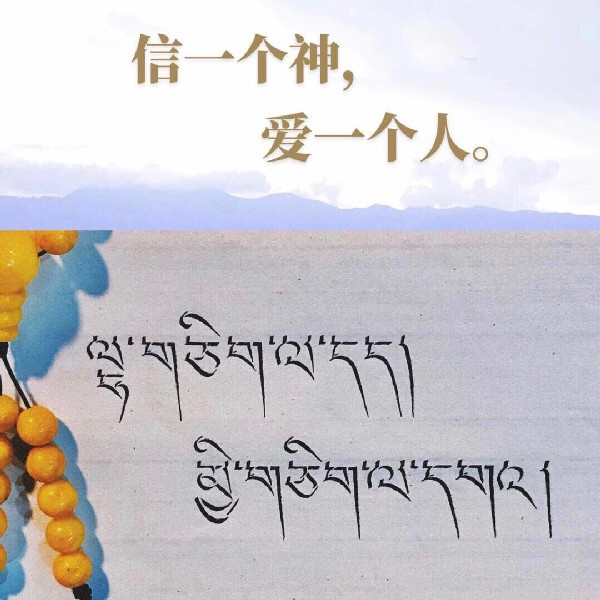 信一个神，
爱一个人。
ལྷ་གཅིག་ལ་དད།
མྱི་གཅིག་ལ་དགའ།